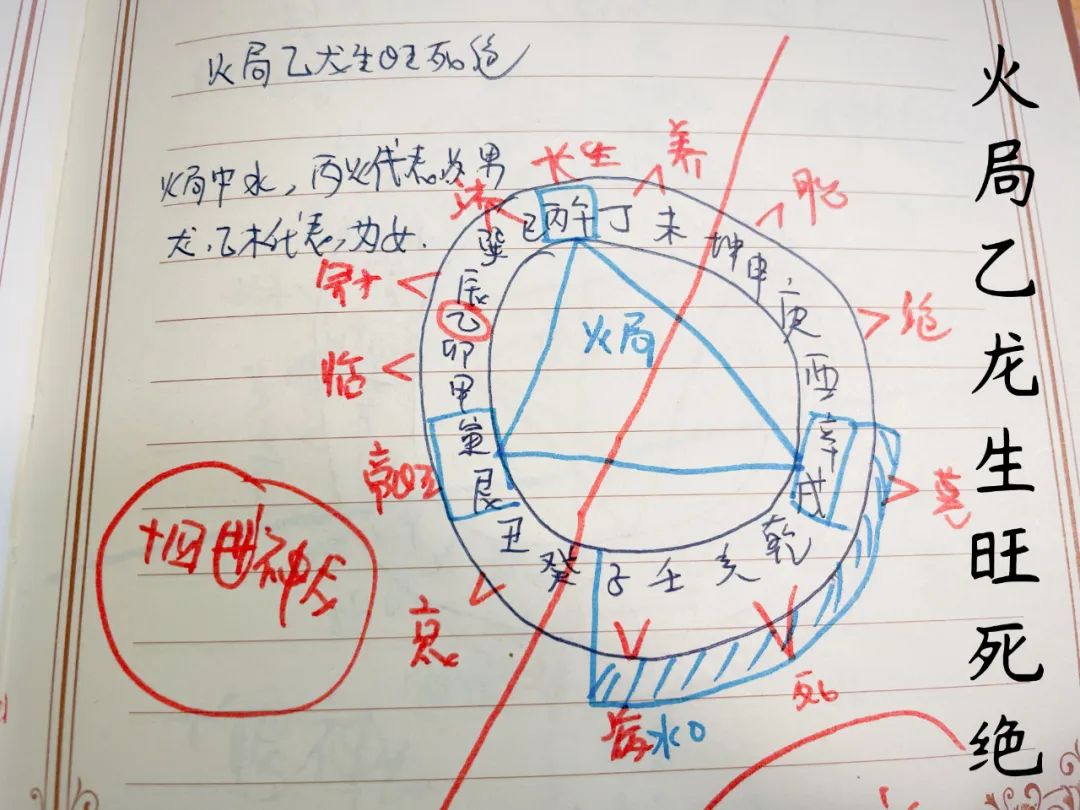 火局乙龙生旺死绝
火局中水，丙火代表为男
龙.乙木代表为女.
长生
养
胎
绝
墓
死
病
水口
衰
帝旺
临
沐
巳
丙午
丁
未
坤申
庚
酉
辛
戌
乾
亥
壬
子
癸
丑
艮
寅
甲
卯
乙
辰
巽
火局
火局乙龙生旺死绝